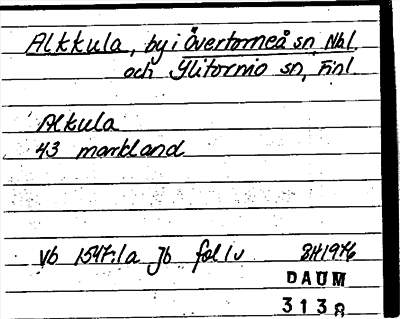 Alkkula, by i Övertorneå sn, Nbl.
och Ylitornio sn, Finl.
Alkula
43 markland
Vb 1547:1a Jb fol 1v BH 1976
DAUM
3138